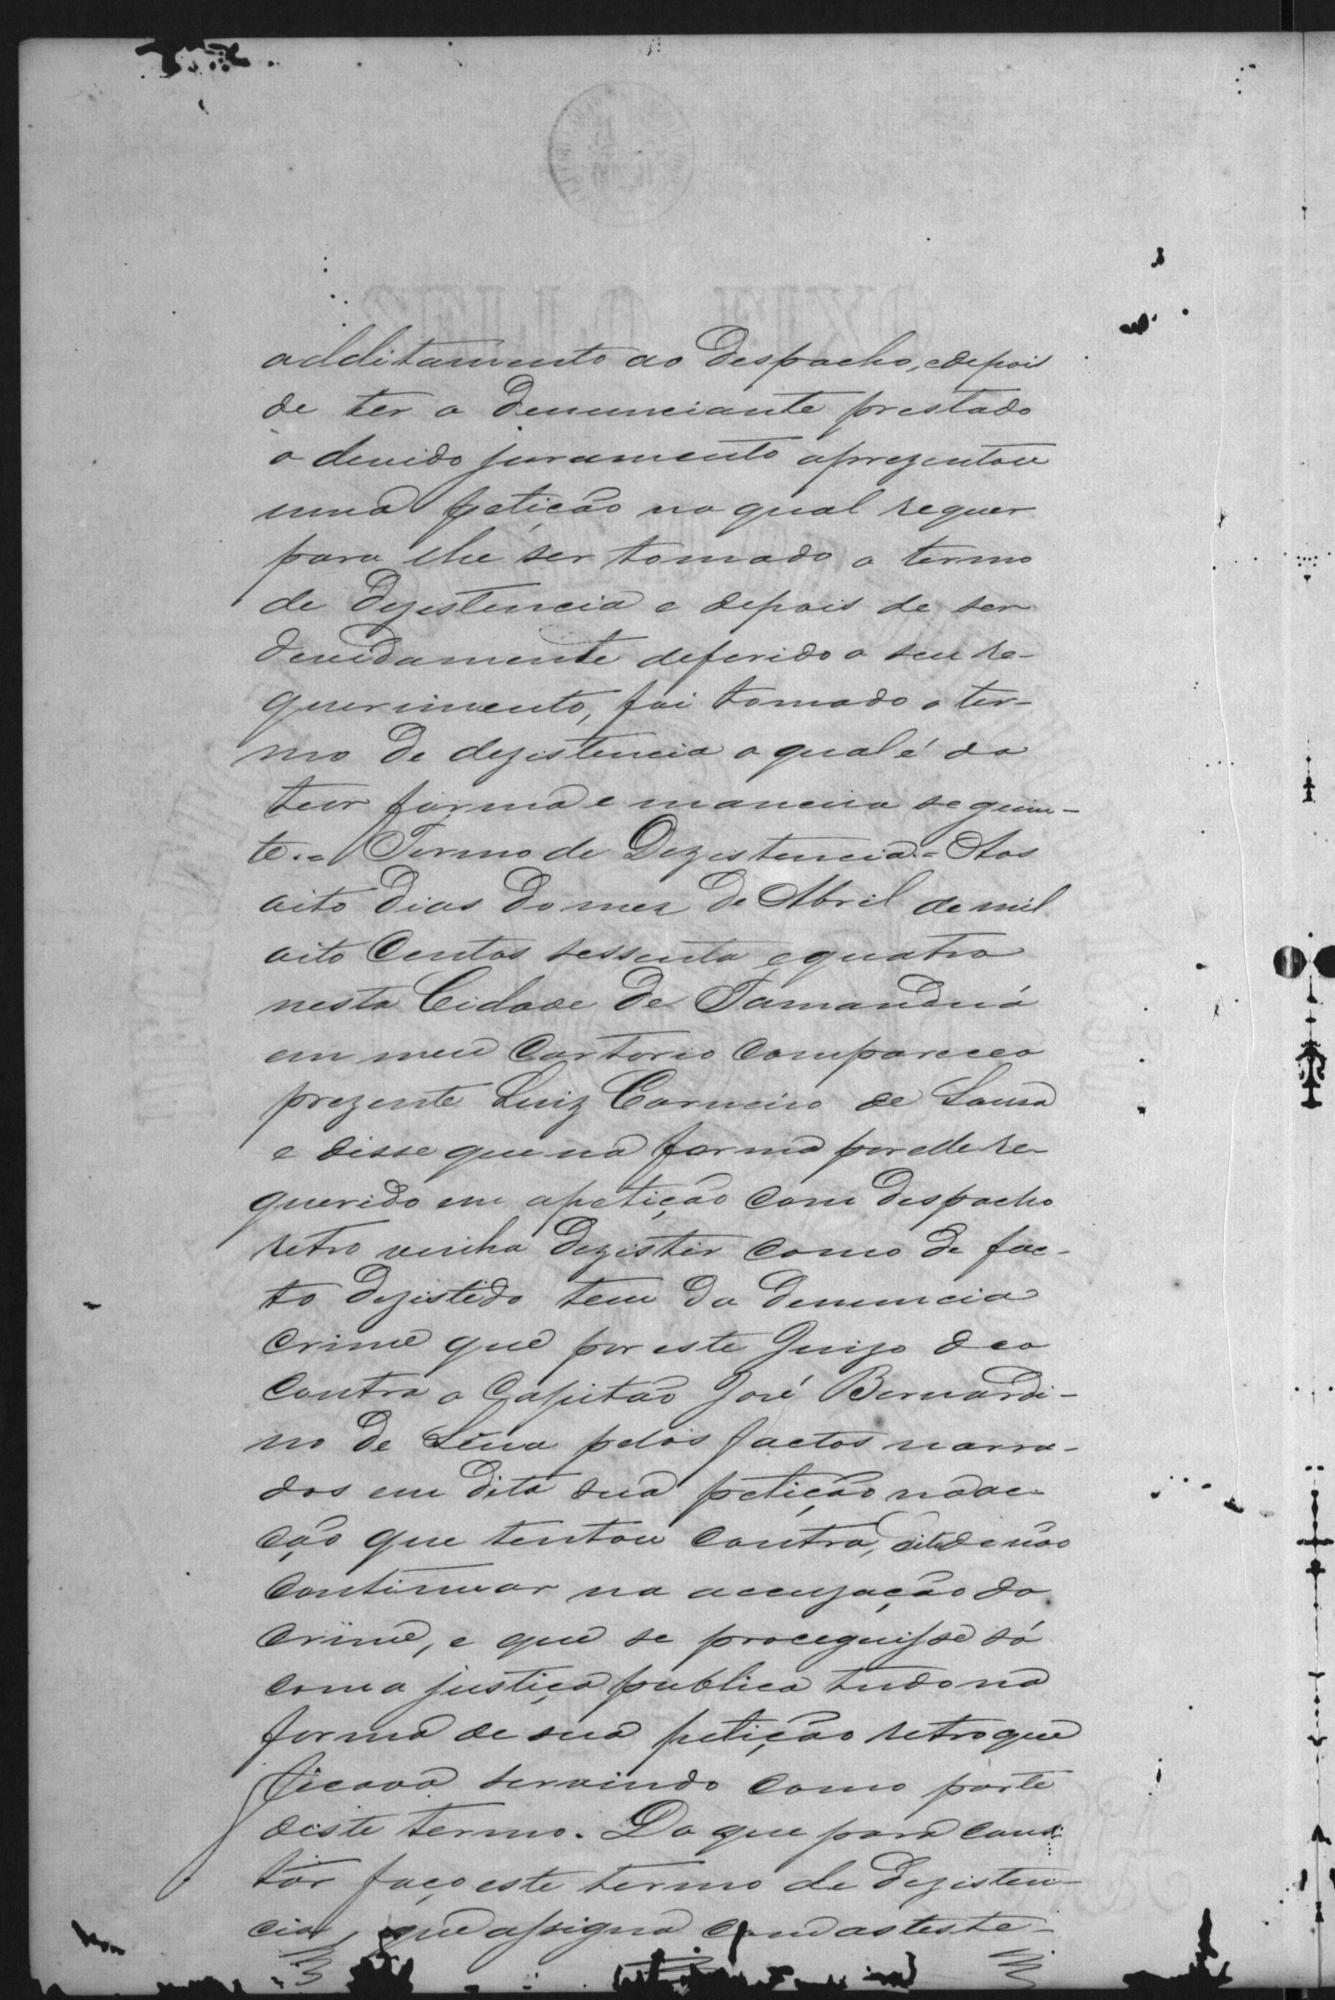 addditamento ao Despacho, edepois
de ter o Denunciante prestado
o devido juramento aprezentou
uma petição na qual requer
para lhe ser tomado o termo
de Dezistencia e depois de ser
devidamente deferido o seu re-
querimento, foi tomado o ter-
mo de dezistencia o qual é do
teor forma e maneira seguin-
te. = Termo de Dezistencia = Aos
oito dias do mez de Abril de mil
oito Centos sessenta equatro
nesta Cidade de Tamanduá
em meu Cartorio Compareceo
prezente Luiz Carneiro de Sousa
e disse que na forma por elle re-
querido em apetição com despacho
retro vinha dezistir como de fac-
to dezistido tem da denuncia
crime que por este Juizo deo
contra o Capitão José Bernardi-
no de Lima pelos factos narra-
dos em dita sua petição na ac-
ção que tentou contra, dito de não
continuar na accuzação do
crime, e que se proceguisse só
com a justiça publica tudo na
forma de sua petição retro que
ficava servindo como parte
deste termo. Do que para cons
tar faço este termo de dezisten-
cia, que assigna com as teste-